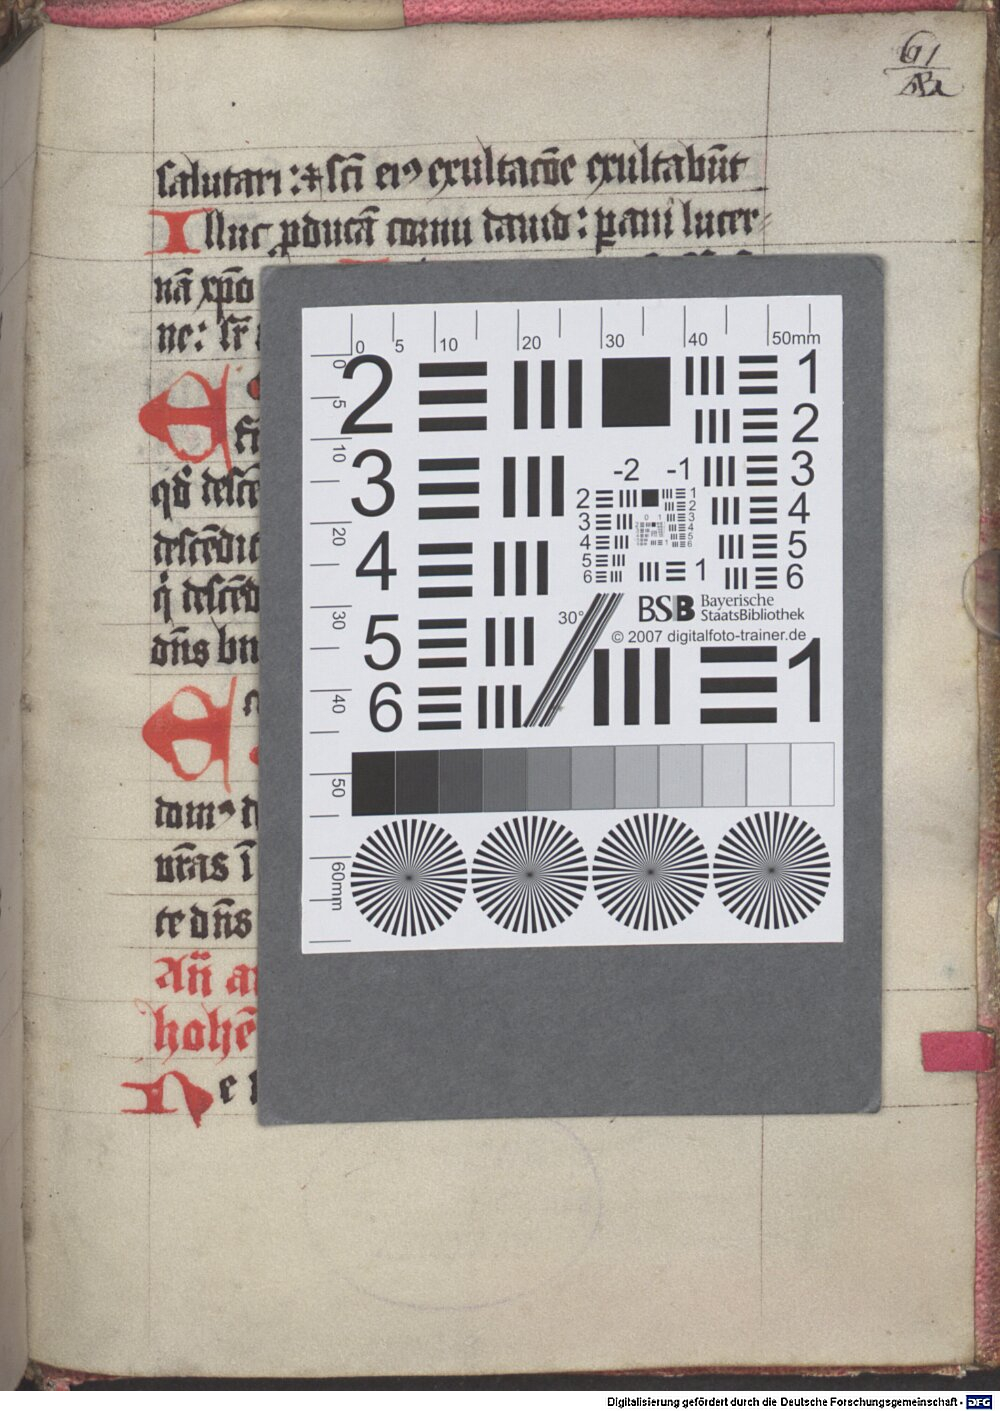 61
salutari : ⁊ sc̄i eiꝰ exultac̄oe exultabūt
Illuc ꝓducā cornu dauid : paui lucer-
nā xp̄o
ne : sr̄
qd̄ desce
descēdit
q̇ descēd
dn̄s bn
domꝰ d
nr̄as ī
te dn̄s
An̄ an
hohē
Ne
0 5 10 20 30 40 50mm
0 5 10 20 30 40 50 60mm
2 1
2
3 -2 -1 3
2 1
2
3 3
4 4
4 4
5 5
5 5
6 6
1 6
30°
BSB Bayerische
StaatsBibliothek
© 2007 digitalfoto-trainer.de
5 1
6
Digitalisierung gefördert durch die Deutsche Forschungsgemeinschaft - DFG